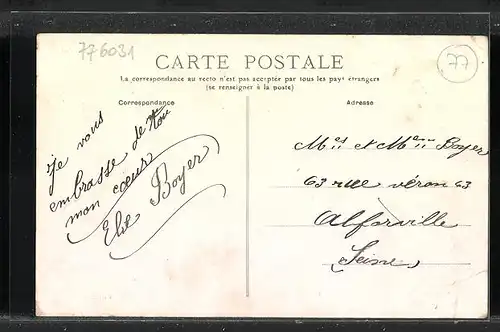 776031
77
CARTE POSTALE
La correspondance au recto n'est pas acceptée par tous les pays étrangers
(se renseigner à la poste)
Correspondance
Adresse
je vous
embrasse de
mon cœur
Boyer
et Boyer
63 rue véron 63
Alforville
Seine